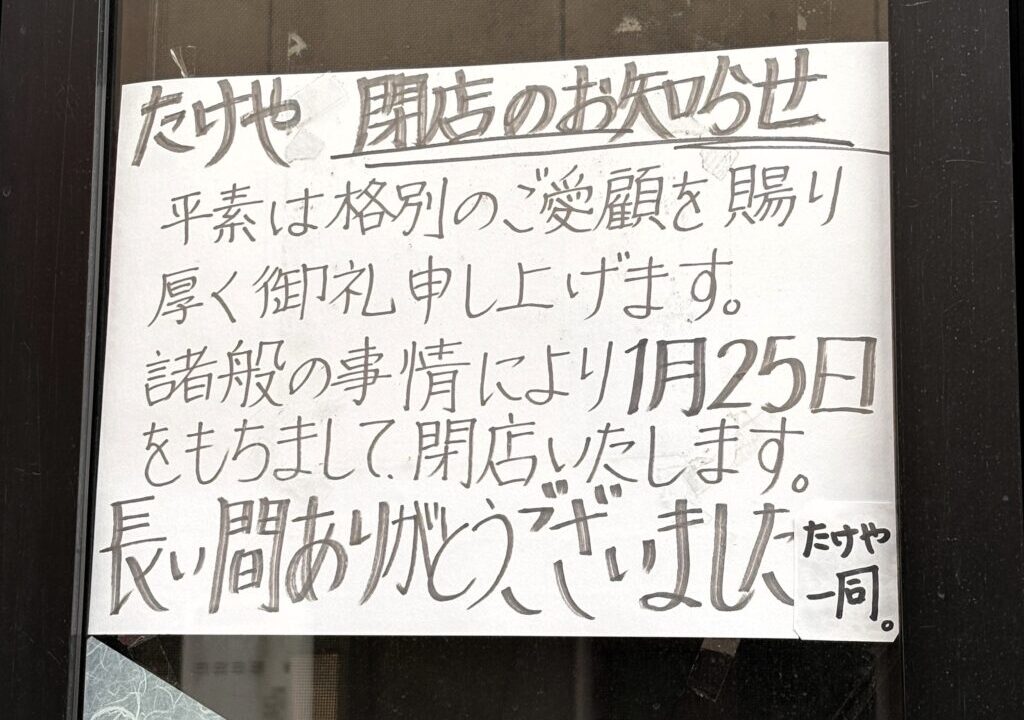 たけや 閉店のお知らせ
平素は格別のご愛顧を賜り
厚く御礼申し上げます。
諸般の事情により1月25日
をもちまして、閉店いたします。
長い間ありがとうございました
たけや
一同。